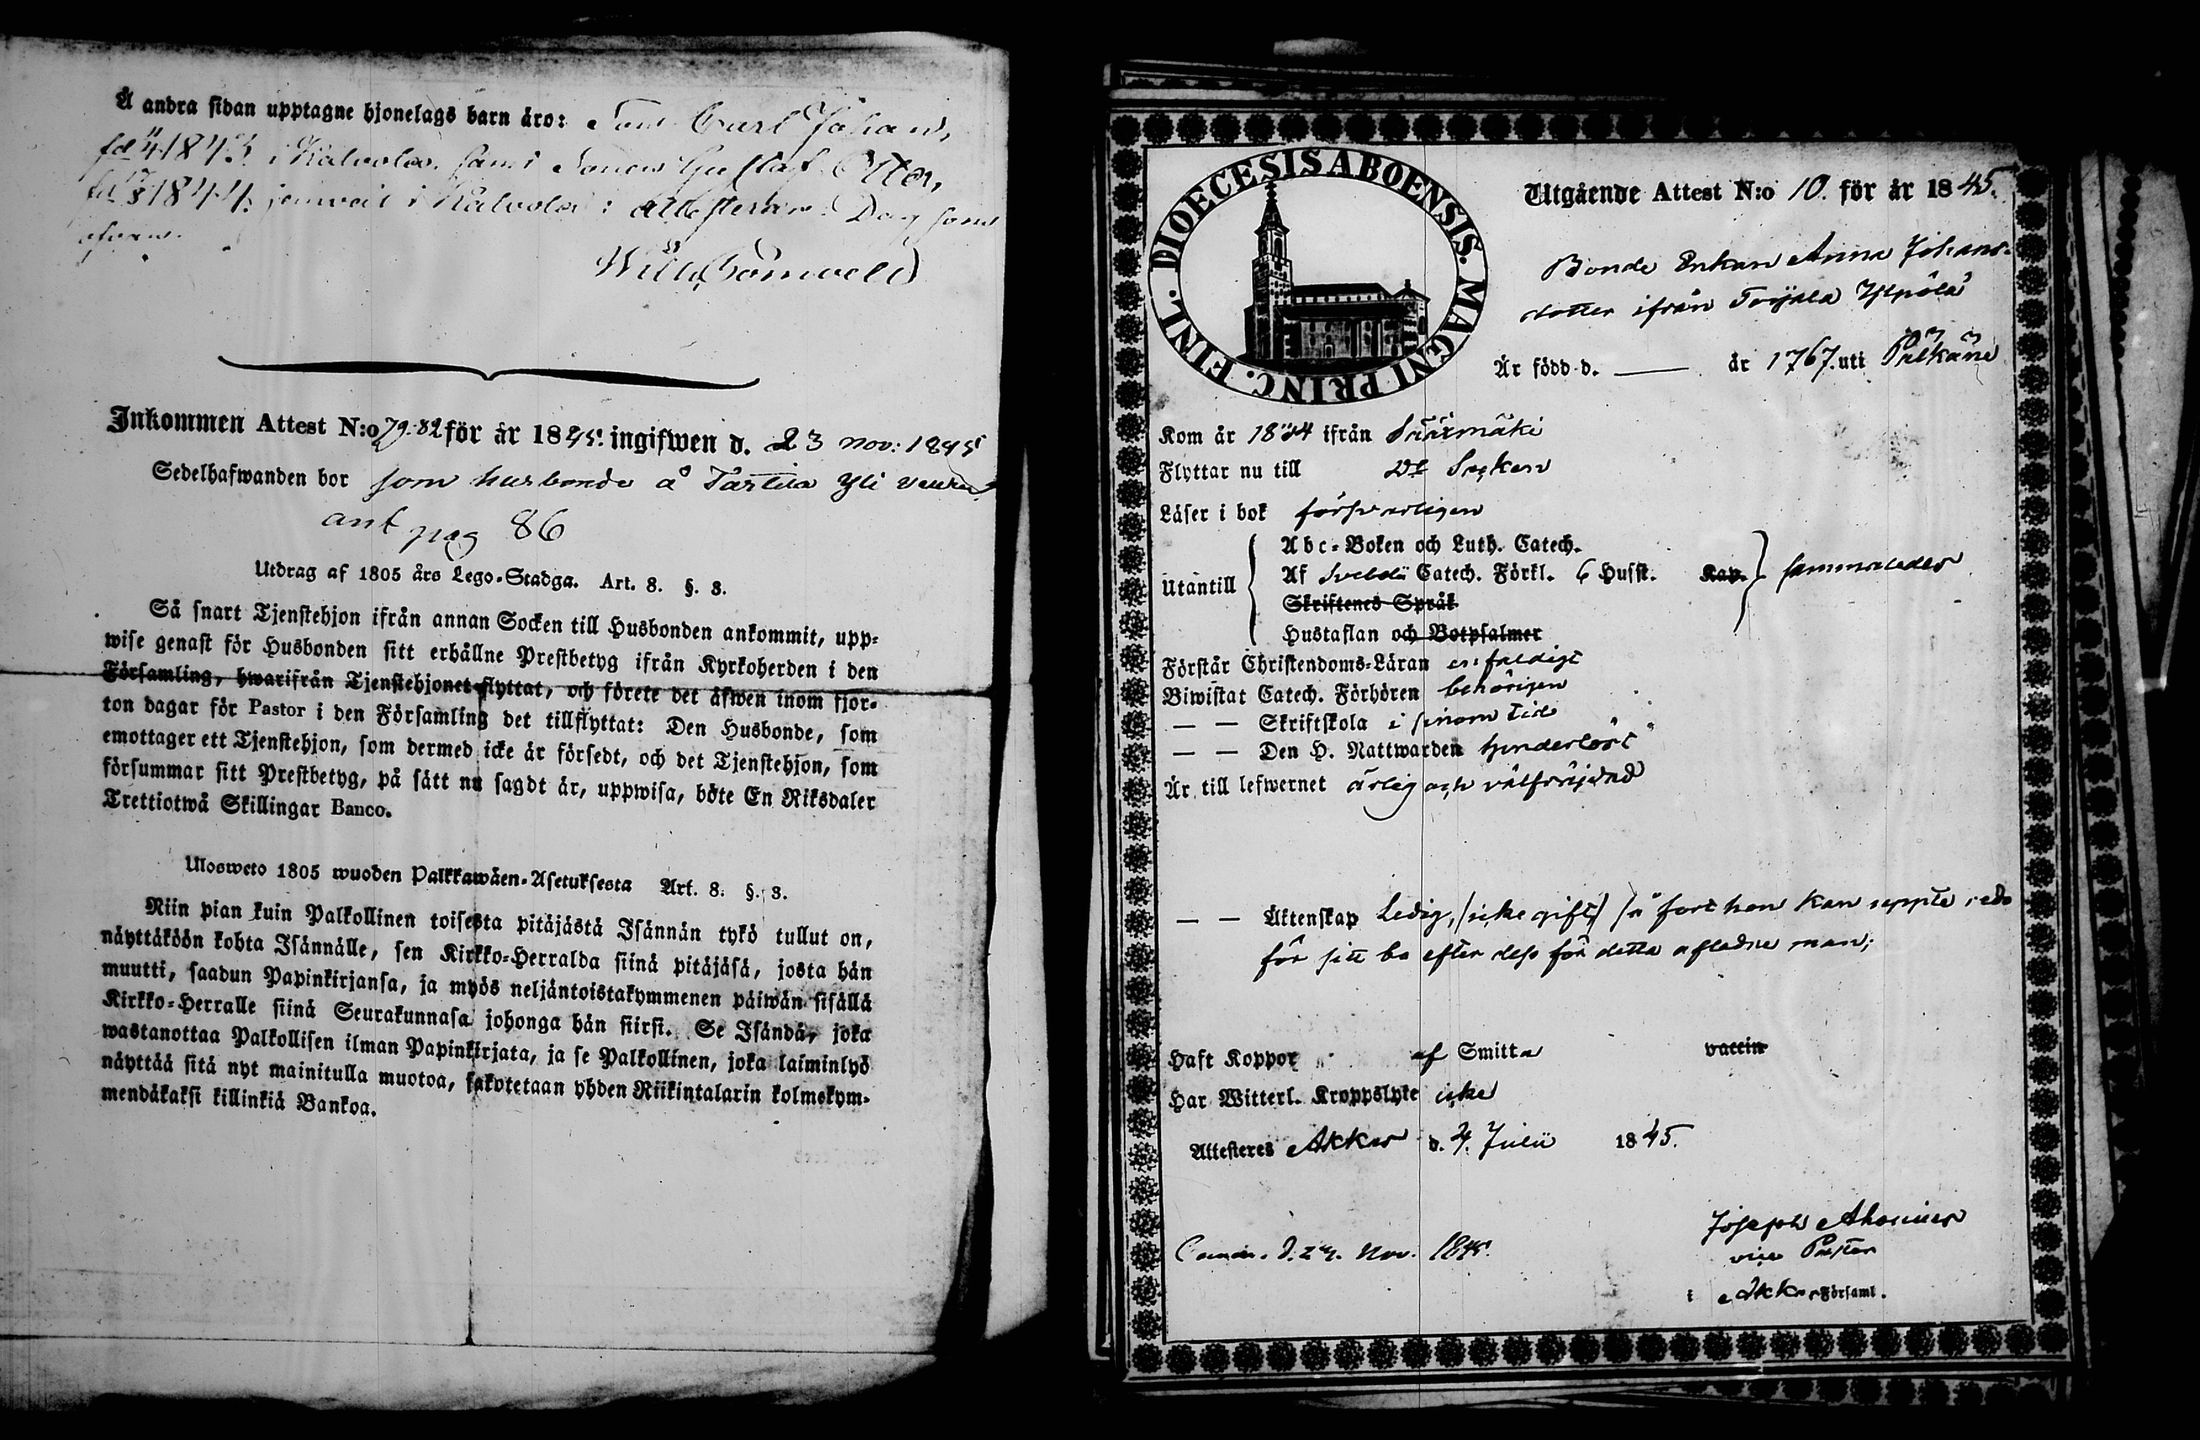 Å andra sidan upptagne hjonelags barn äro: Son Carl Johan,
fd 1843 i Kalvola, samt Sonen Gustaf Otto,
fd 1844 jemväl i Kalvola: attesteras. Dag som
ofvan.
Wilh.
Inkommen Attest N:o 79.82 för år 1845. ingifwen d. 23 nov: 1845
Sedelhafwanden bor som husbonde å Tarttila Yli
ant pag 86
Utdrag af 1805 års Lego-Stadga. Art. 8. §. 3.
Så snart Tjenstehjon ifrån annan Socken till Husbonden ankommit, upp-
wise genast för Husbonden sitt erhållne Prestbetyg ifrån Kyrkoherden i den
Församling, hwarifrån Tjenstehjonet flyttat, och förete det äfwen inom fjor-
ton dagar för Pastor i den Församling det tillflyttat: Den Husbonde, som
emottager ett Tjenstehjon, som dermed icke är försedt, och det Tjenstehjon, som
försummar sitt Prestbetyg, på sätt nu sagdt är, uppwisa, böte En Riksdaler
Trettiotwå Skillingar Banco.
Ulosweto 1805 wuoden Palkkawäen-Asetuksesta Art. 8. §. 3.
Niin pian kuin Palkollinen toisesta pitäjästä Isännän tykö tullut on,
näyttäköön kohta Isännälle, sen Kirkko-Herralda siinä pitäjäsä, josta hän
muutti, saadun Papinkirjansa, ja myös neljäntoistakymmenen päiwän sisällä
Kirkko-Herralle siinä Seurakunnasa johonga hän siirsi. Se Isändä, joka
wastanottaa Palkollisen ilman Papinkirjata, ja se Palkollinen, joka laiminlyö
näyttää sitä nyt mainitulla muotoa, sakotetaan yhden Riikintalarin kolmekym-
mendäkaksi killinkiä Bankoa.
DIOECESIS ABOENSIS. MAGNI PRINC. FINL.
Utgående Attest N:o 10. för år 1845.
Bonde Enkan Anna Johans-
dotter ifrån Toijala Ylpölä
Är född d. — år 1767. uti Pälkäne
Kom år 1804 ifrån Sääxmäki
Flyttar nu till Dº Socken
Läser i bok försvarligen
Utantill
Abc-Boken och Luth. Catech.
Af Svebelii Catech. Förkl. 6 Husst. Kap. sammaledes
Skriftenes Språk
Hustaflan och Botpsalmer
Förstår Christendoms-Läran enfaldigt
Biwistat Catech. Förhören behörigen
— — Skriftskola i sinom tid
— — Den H. Nattwarden hinderlöst
Är till lefwernet ärlig och välfräjdad
— — Äktenskap Ledig, (icke gift) så fort hon kan uppte reda
för sitt bo efter dess för detta aflidne man;
Haft Koppor af Smitta vaccin
Har Witterl. Kroppslyte icke
Attesteres Akkas d. 4. Julii 1845.
Joseph
vice Pastor
i Akkas Församl.
d. 24. Nov. 1845.